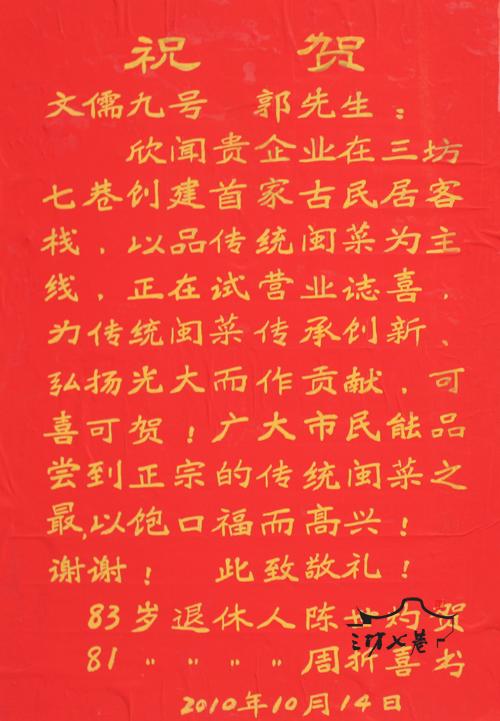 祝 贺
文儒九号 郭先生：
欣闻贵企业在三坊
七巷创建首家古民居客
栈，以品传统闽菜为主
线，正在试营业誌喜，
为传统闽菜传承创新、
弘扬光大而作贡献，可
喜可贺！广大市民能品
尝到正宗的传统闽菜之
最，以饱口福而高兴！
谢谢！ 此致敬礼！
83岁退休人陈 灼贺
三坊七巷
81 〃 〃 〃 〃 周折喜书
2010年10月14日